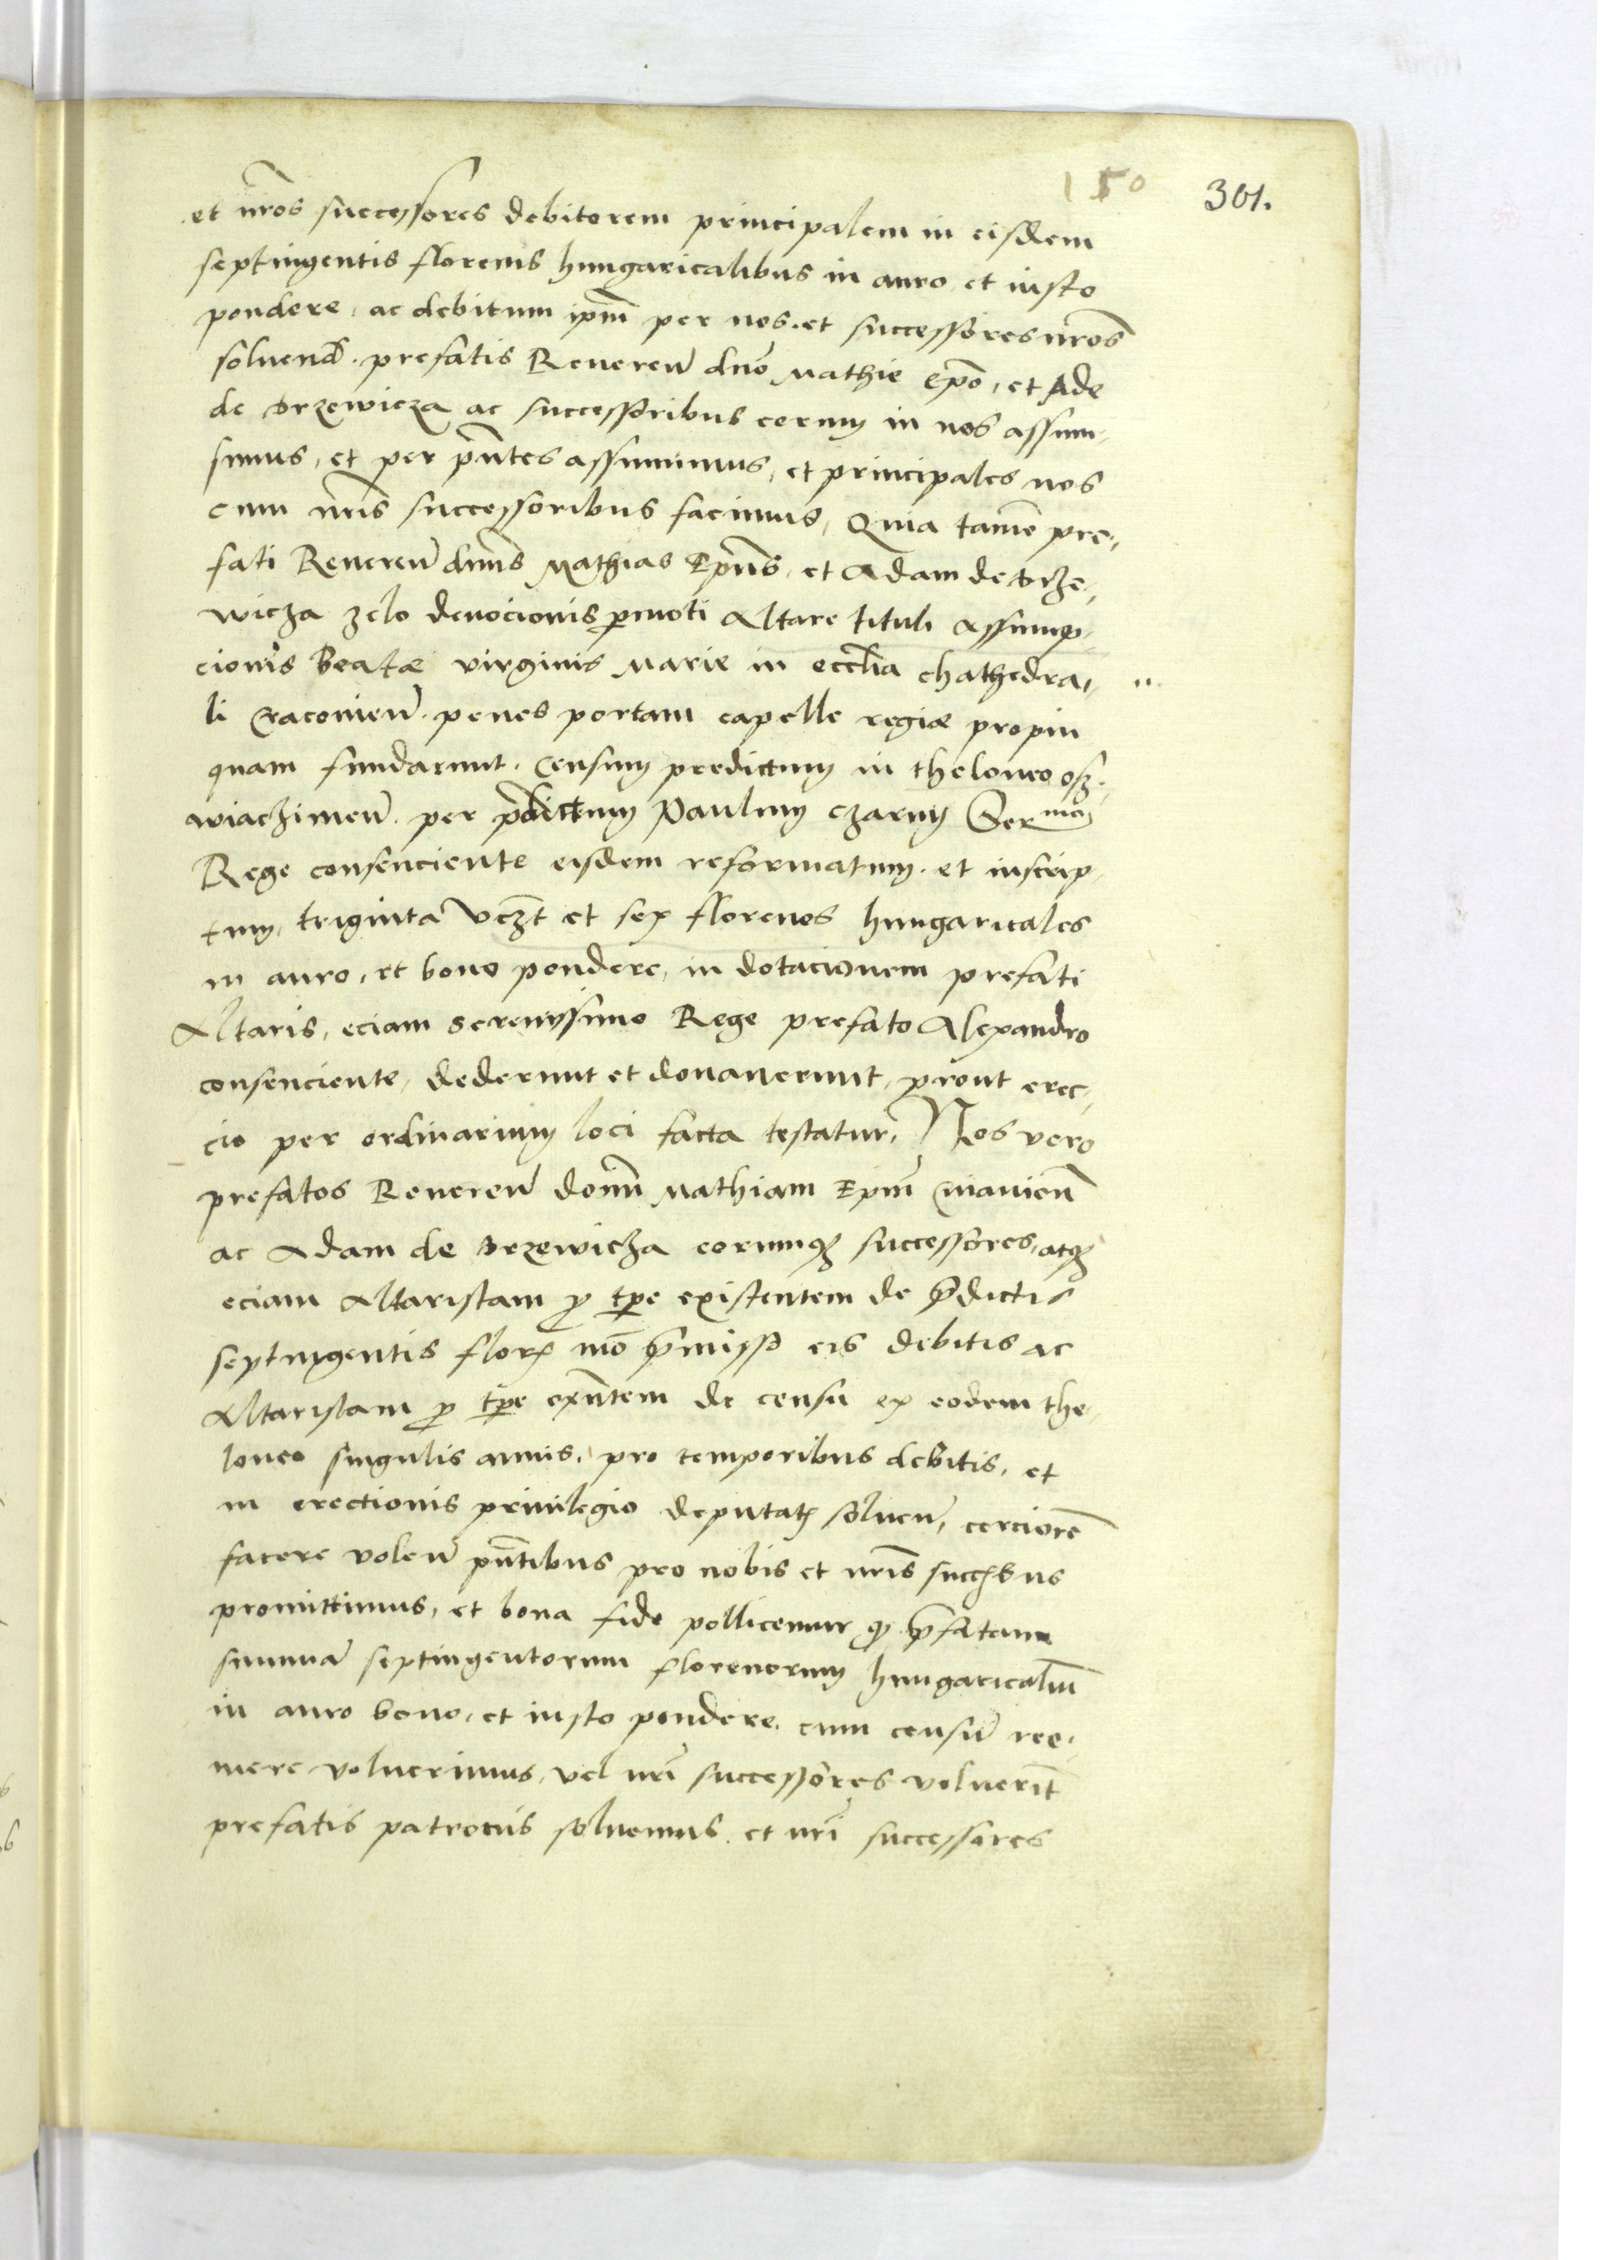 150 301.
et nr̄os successores debitorem principalem in eisdem
septingentis florenis hungaricalibus in auro et iusto
pondere, ac debitum ip̄m per nos et successores nr̄os
soluend̄. prefatis Reueren̄ dn̄o Mathie Ep̄o, et Ade
de Drzewicza ac successoribus eorum in nos assum,
simus, et per pn̄tes assumimus, et principales nos
cum nr̄is successoribus facimus, Quia tamē pre,
fati Reueren̄ dn̄us Mathias Ep̄us, et Adam de Drze,
wicza zelo deuocionis ꝑmoti Altare tituli Assump,
cionis Beatæ virginis Marie in eccl̄ia chathedra,
li Cracouien̄. penes portam capelle regiæ propin
quam fundarunt. Censum predictum in theloneo osz,
wiaczimen̄. per p̄dictum Paulum Czarny Ser̄mo
Rege consenciente eisdem reformatum. et inscrip,
tum, triginta vcz̄t et sex florenos hungaricales
in auro, et bono pondere, in dotacionem prefati
Altaris, eciam serenissimo Rege prefato Alexandro
consenciente, dederunt et donauerunt, prout erec,
cio per ordinarium loci facta testatur, Nos vero
prefatos Reueren̄ domn̄ Mathiam Ep̄m Cuiauien̄
ac Adam de Drzewicza eorumqꝫ successores, atqꝫ
eciam Altaristam ꝓ tp̄e existentem de p̄dictis
septingentis florꝭ mō p̄misso eis debitis ac
Altaristam ꝓ tp̄e exn̄tem de censu ex eodem the,
loneo singulis annis, pro temporibus debitis, et
in erectionis priuilegio deputatꝭ soluen̄, cerciorē
facere volen̄ pn̄tibus pro nobis et nr̄is succꝭbus
promittimus, et bona fide pollicemur ꝙ p̄fatam
summā septingentorum florenorum hungaricaliū
in auro bono, et iusto pondere, cum censū ree,
mere voluerimus, vel nr̄i successores voluerīt
prefatis patronis soluemus, et nr̄i successores